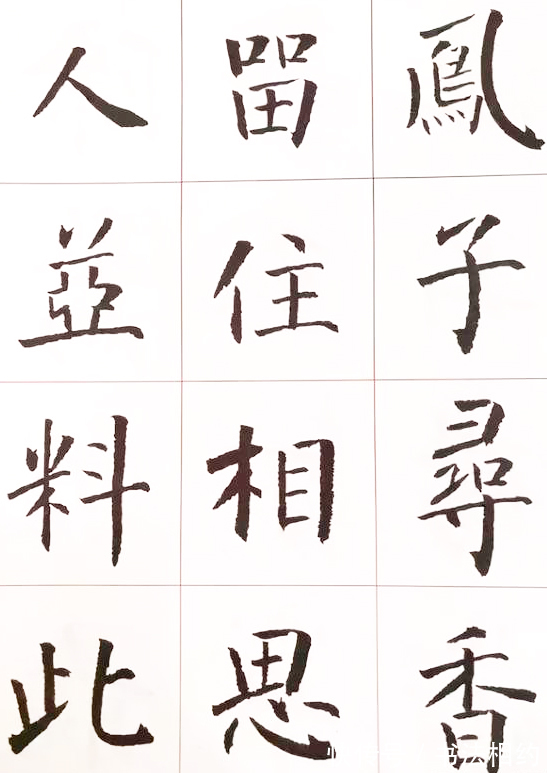 鳳子尋香
留住相思
人並料此
书法相约